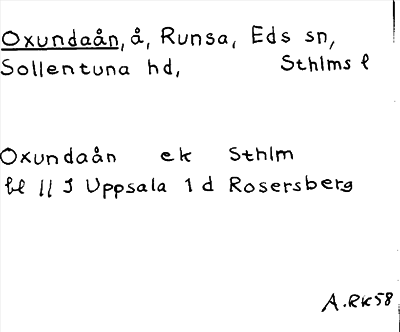 Oxundaån, å, Runsa, Eds sn,
Sollentuna hd, Sthlms l
Oxundaån ek Sthlm
bl 11 J Uppsala 1 d Rosersberg
A.RK58